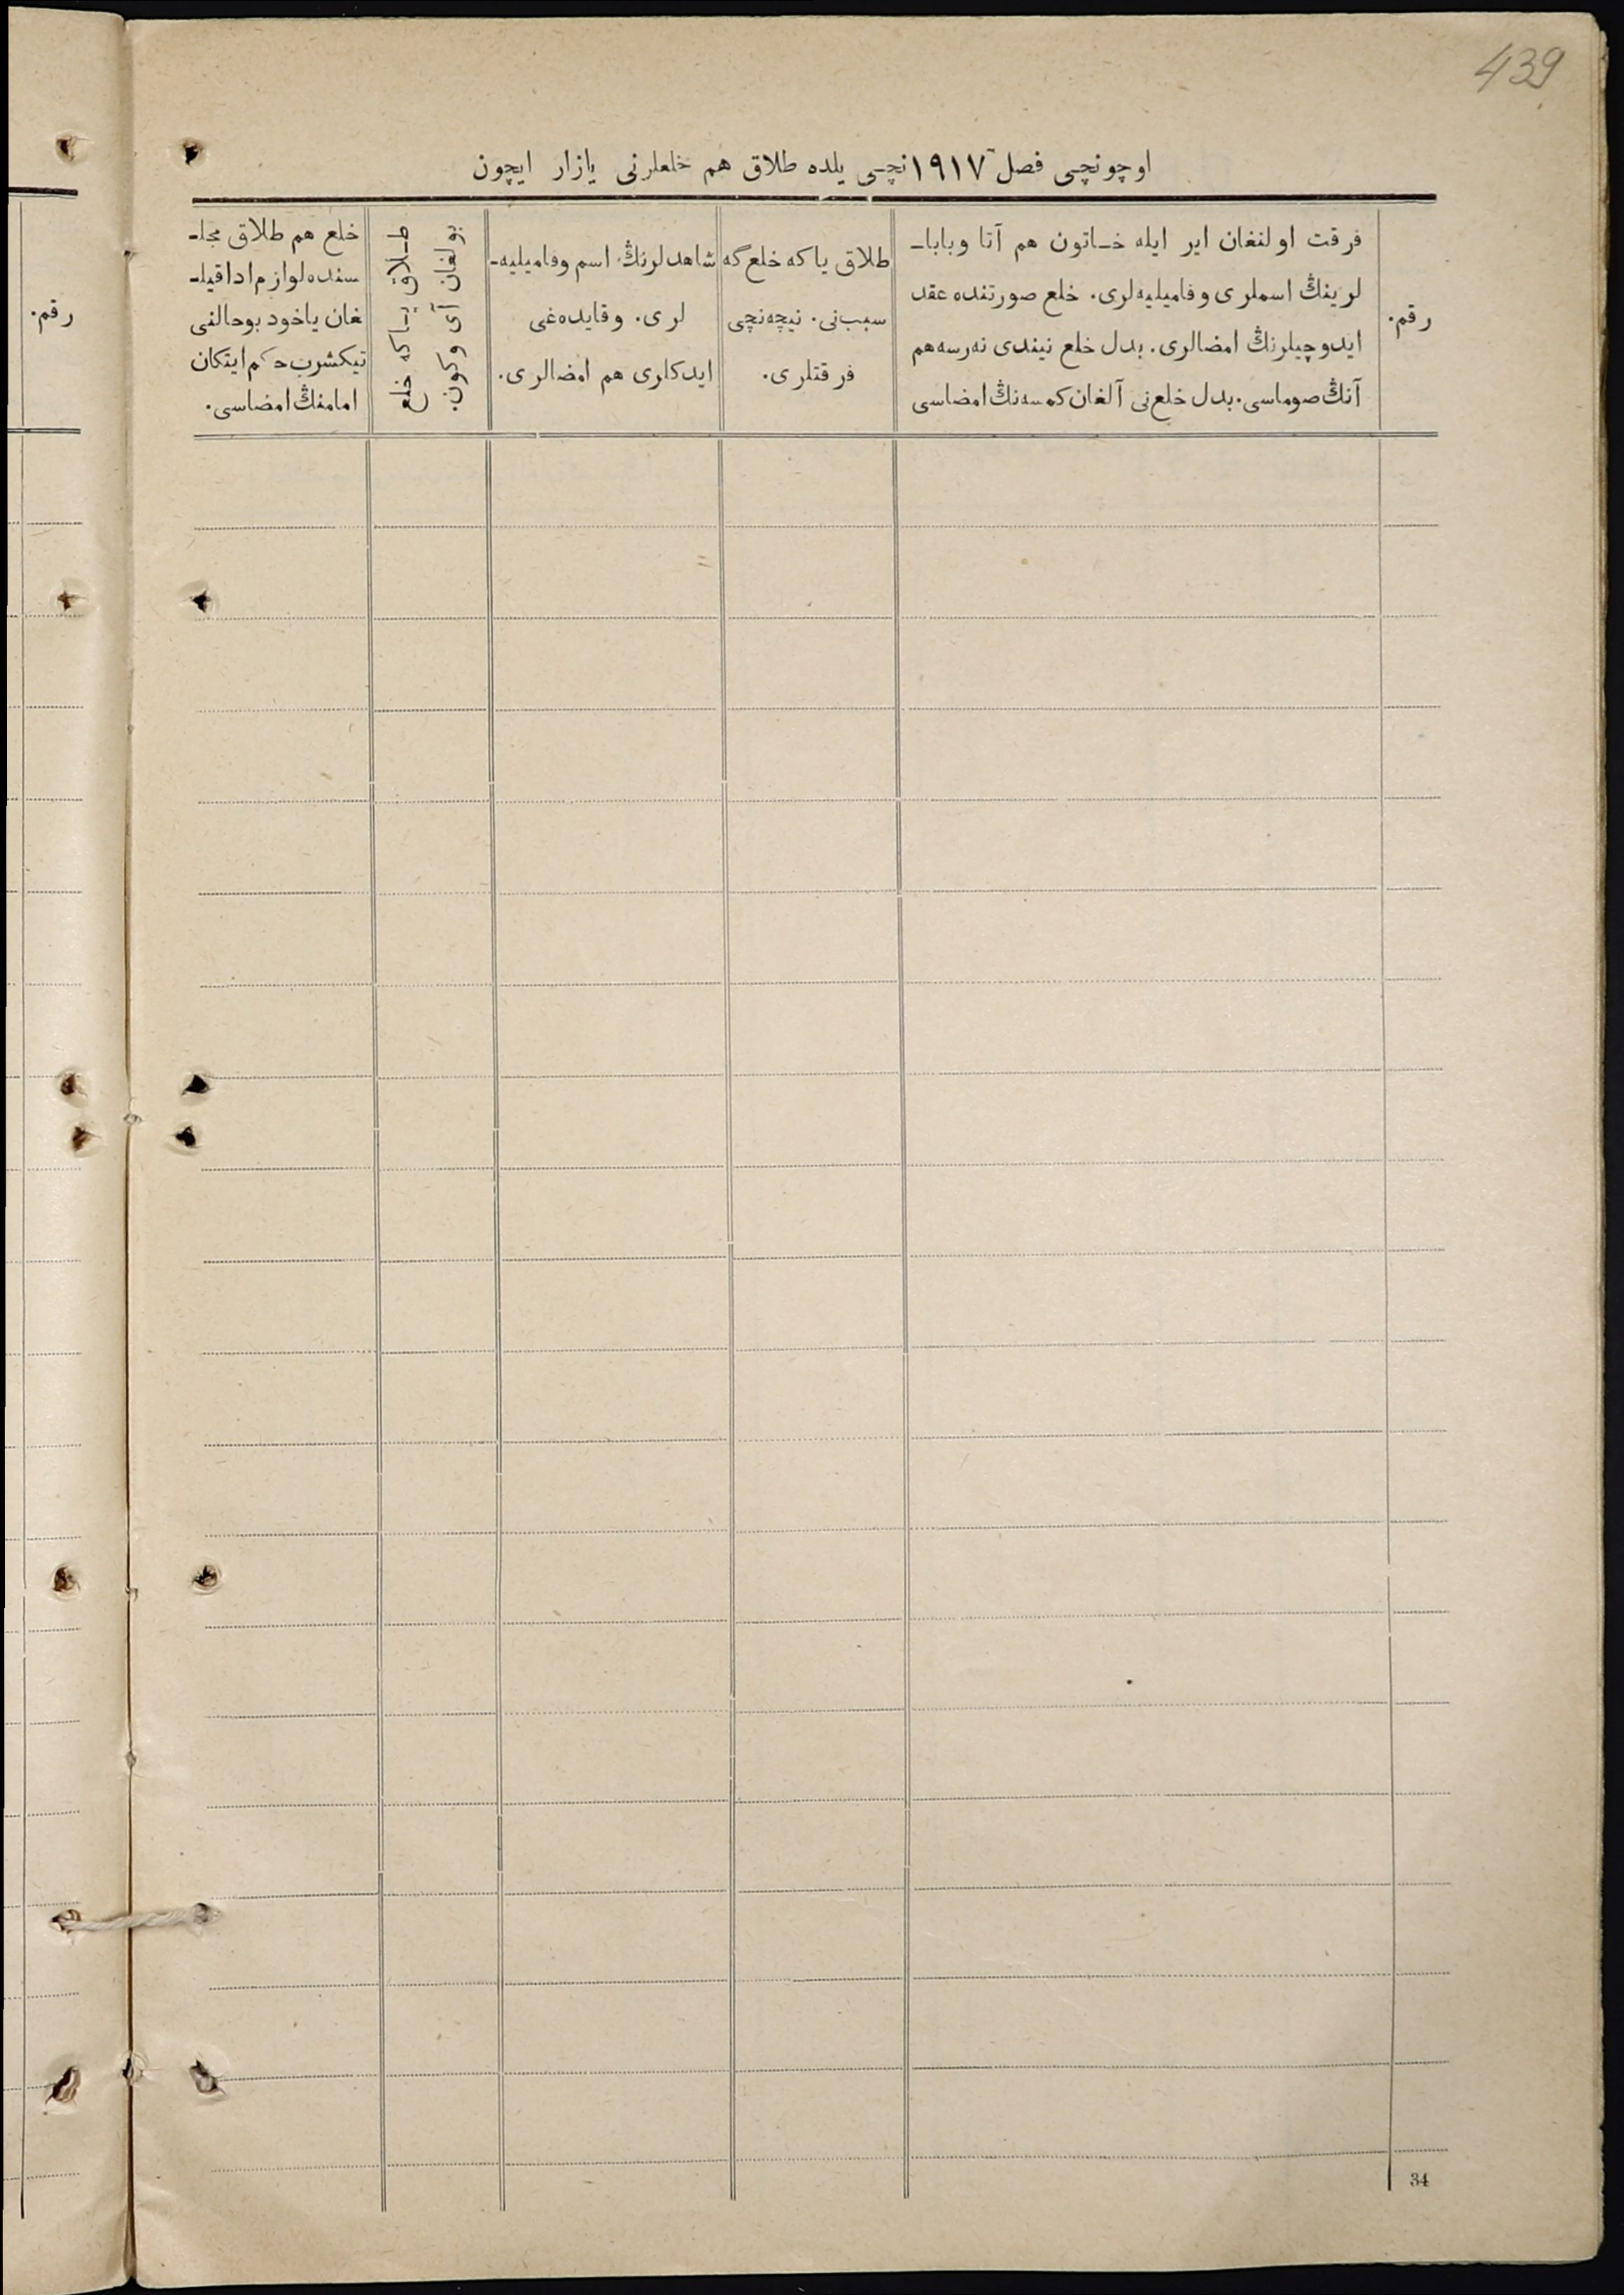 439
اوچونچی فصل ١٩١٧نچی یلده طلاق هم خلعلرنی یازار ایچون
رقم.
فرقت اولنغان ایر ایله خـاتون هم آتا وباباـ
لرینڭ اسملری وفامیلیه‌لری. خلع صورتنده عقد
ایدوچیلرنڭ امضالری. بدل خلع نیندی نه‌رسه هم
آنڭ صوماسی. بدل خلع‌نی آلغان کمسه‌نڭ امضاسی
طلاق یاکه خلع‌گه
سبب‌نی. نیچه‌نچی
فرقتلری.
شاهدلرنڭ اسم وفامیلیه‌ـ
لری. وقایده‌غی
ایدکلری هم امضالری.
طـلاق یـاکه خلع
بولغان آی وکون.
خلع هم طلاق مجلـ
سنده لوازم ادا قیلـ
غان یاخود بوحالنی
تیکشرب حکم ایتکان
امامنڭ امضاسی.
رقم.
34